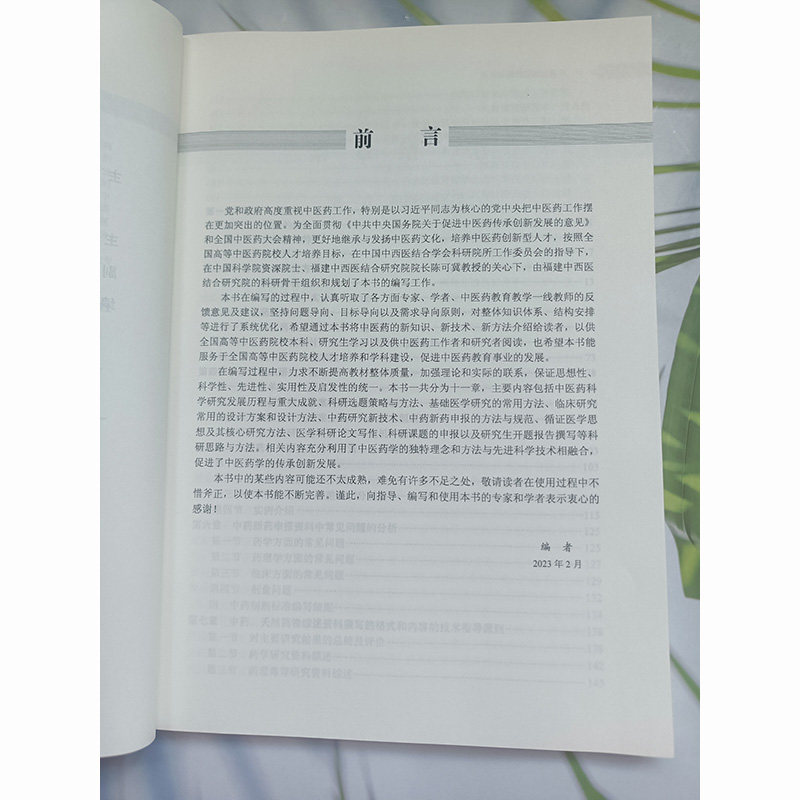 前 言
党和政府高度重视中医药工作，特别是以习近平同志为核心的党中央把中医药工作摆
在更加突出的位置。为全面贯彻《中共中央国务院关于促进中医药传承创新发展的意见》
和全国中医药大会精神，更好地继承与发扬中医药文化，培养中医药创新型人才，按照全
国高等中医药院校人才培养目标，在中国中西医结合学会科研院所工作委员会的指导下，
在中国科学院资深院士、福建中西医结合研究院院长陈可冀教授的关心下，由福建中西医
结合研究院的科研骨干组织和规划了本书的编写工作。
本书在编写的过程中，认真听取了各方面专家、学者、中医药教育教学一线教师的反
馈意见及建议，坚持问题导向、目标导向以及需求导向原则，对整体知识体系、结构安排
等进行了系统优化，希望通过本书将中医药的新知识、新技术、新方法介绍给读者，以供
全国高等中医药院校本科、研究生学习以及供中医药工作者和研究者阅读，也希望本书能
服务于全国高等中医药院校人才培养和学科建设，促进中医药教育事业的发展。
在编写过程中，力求不断提高教材整体质量，加强理论和实际的联系，保证思想性、
科学性、先进性、实用性及启发性的统一。本书一共分为十一章，主要内容包括中医药科
学研究发展历程与重大成就、科研选题策略与方法、基础医学研究的常用方法、临床研究
常用的设计方案和设计方法、中药研究新技术、中药新药申报的方法与规范、循证医学思
想及其核心研究方法、医学科研论文写作、科研课题的申报以及研究生开题报告撰写等科
研思路与方法，相关内容充分利用了中医药学的独特理念和方法与先进科学技术相融合，
促进了中医药学的传承创新发展。
本书中的某些内容可能还不太成熟，难免有许多不足之处，敬请读者在使用过程中不
惜斧正，以使本书能不断完善。谨此，向指导、编写和使用本书的专家和学者表示衷心的
感谢！
编 者
2023 年 2 月